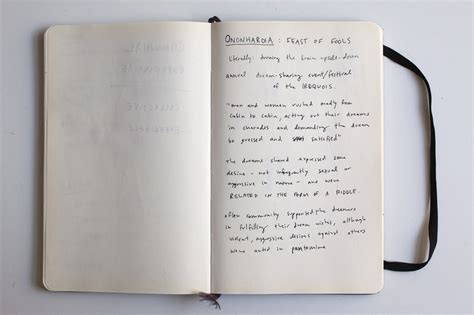 ONONHAROIA : FEAST OF FOOLS
literally: turning the brain upside-down
annual dream-sharing event/festival
of the IROQUOIS.
"men and women rushed madly from
cabin to cabin, acting out their dreams
in charades and demanding the dream
be guessed and satisfied"
The dreams shared expressed some
desire - not infrequently sexual or
aggressive in nature - and were
RELATED IN THE FORM OF A RIDDLE.
often community supported the dreamers
in fulfilling their dream wishes, although
violent, aggressive desires against others
were acted in pantomime